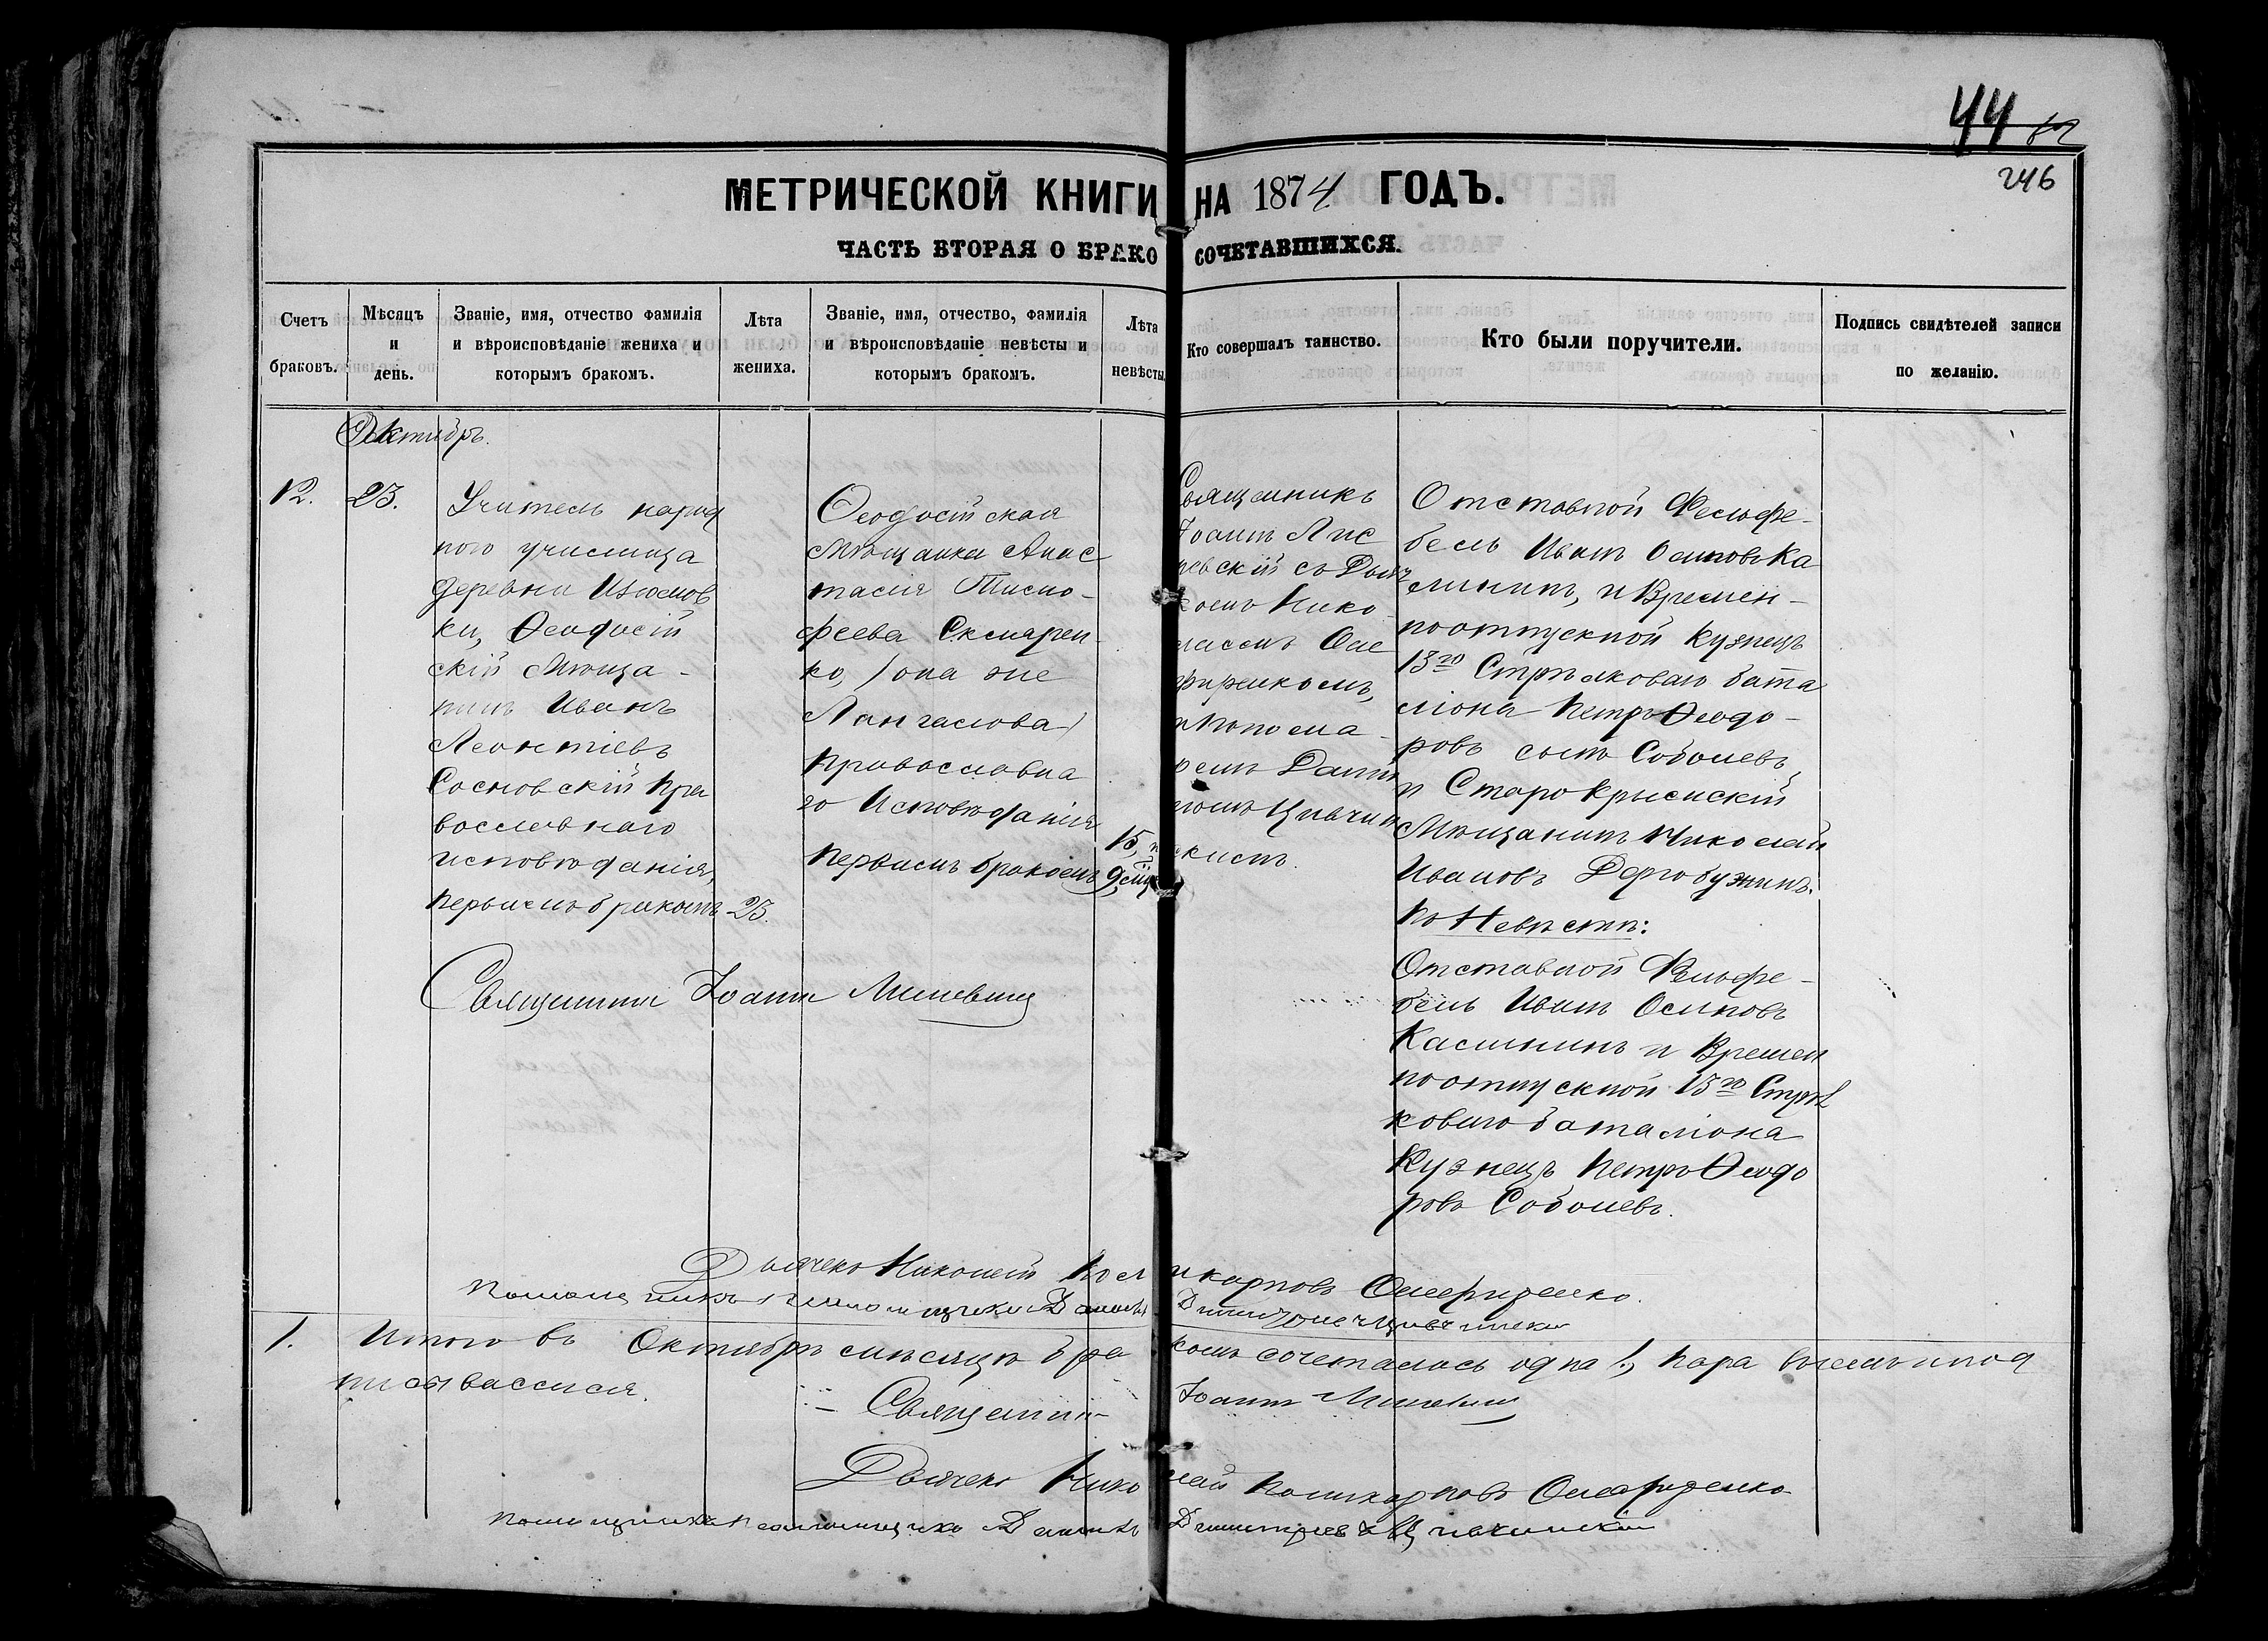 44
246
МЕТРИЧЕСКОЙ КНИГИ НА 1874 ГОДЪ.
ЧАСТЬ ВТОРАЯ О БРАКОСОЧЕТАВШИХСЯ.
Счетъ
браковъ.
Мѣсяцъ
и
день.
Званіе, имя, отчество фамилія
и вѣроисповѣданіе жениха и
которымъ бракомъ.
Лѣта
жениха.
Званіе, имя, отчество, фамилія
и вѣроисповѣданіе невѣсты и
которымъ бракомъ.
Лѣта
невѣсты
Кто совершалъ таинство.
Кто были поручители.
Подпись свидѣтелей записи
по желанію.
Октябрь.
12.
23.
Учитель народ
наго училища
деревни Изюмов
ки, Ѳеодосій
скій Мѣща-
нинъ Иванъ
Леонтіевъ
Сосновскій Пра
вославнаго
исповѣданія,
первымъ бракомъ
23.
Ѳеодосійская
Мѣщанка Анас
тасія Тимо-
феева Склярен-
ко, (она же
Лонгалова)
Православна
го Исповѣданія
первымъ бракомъ
15,
9 мѣс
Священникъ
Іоаннъ
съ Дьяч
комъ Нико
лаемъ
Понома-
ремъ Даніи
ломъ
скимъ.
Отставной Фельдфе-
бель Иванъ Осиповъ Ка
лининъ, и Времен-
ноотпускной кузнецъ
13го Стрѣлковаго бата
ліона Петръ Ѳеодо-
ровъ сынъ Соболевъ
и Старокрымскій
Мѣщанинъ Николай
Ивановъ Деробужинъ.
По Невѣстѣ:
Отставной Фельдфе-
бель Иванъ Осиповъ
Калининъ и Времен
ноотпускной 13го Стрѣл
коваго баталіона
Кузнецъ Петръ Ѳеодо
ровъ Соболевъ.
Священникъ Іоаннъ
Дьячекъ Николай Поликарповъ
1. Итого въ Октябрѣ мѣсяцѣ бракомъ сочеталась одна 1, пара
Священникъ Іоаннъ
Дьячекъ Николай Поликарповъ